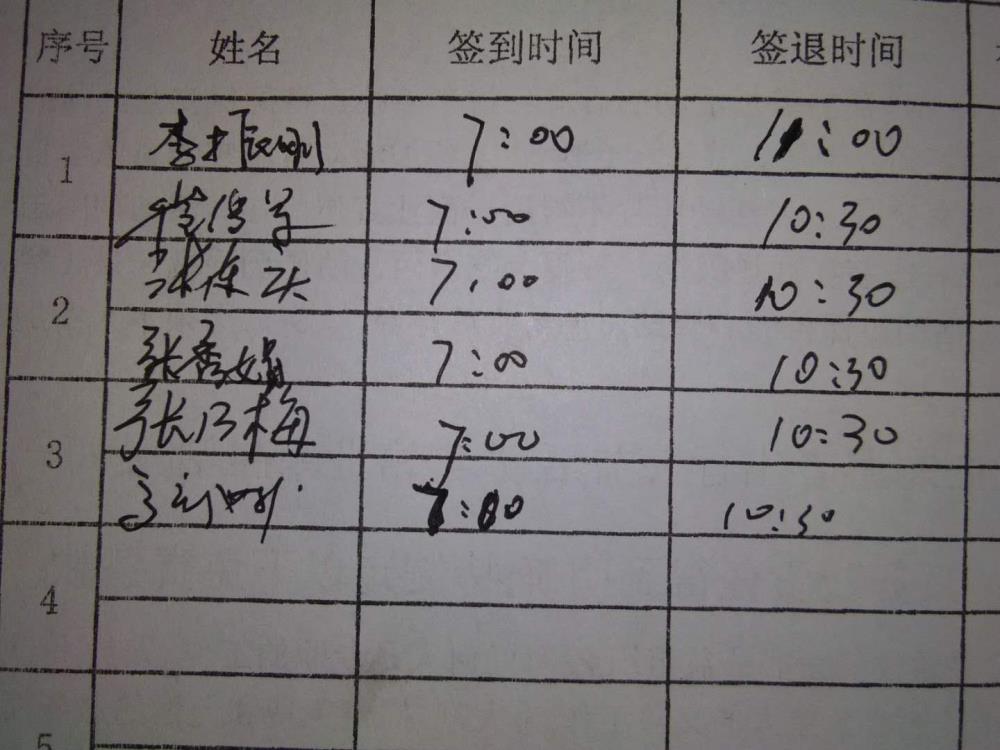 序号 姓名 签到时间 签退时间
1 李振明 7:00 11:00
7:00 10:30
2 7:00 10:30
张秀娟 7:00 10:30
3 张乃梅 7:00 10:30
7:00 10:30
4
5